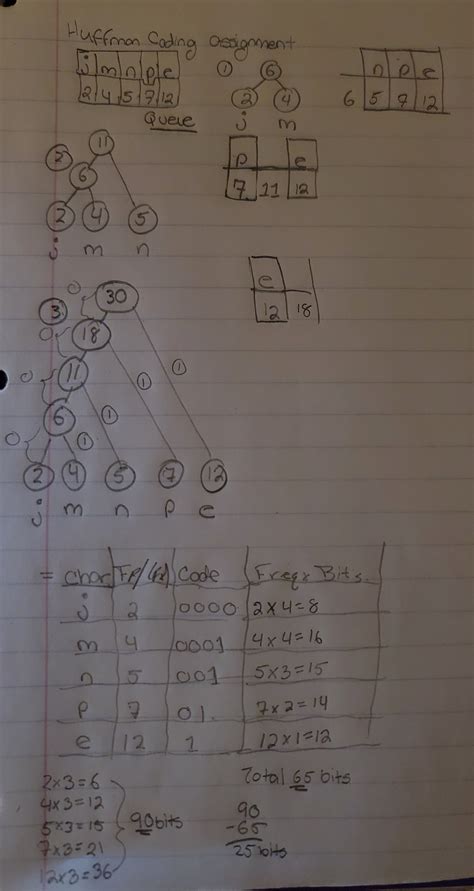 Huffman Coding assignment
j m n p e
2 4 5 7 12
Queue
1
6
2 4
j m
n p e
6 5 7 12
2
11
6
2 4 5
j m n
p e
7 11 12
e
12 18
3
0 30
0 18 1
0 11 1
0 6 1
0 1
2 4 5 7 12
j m n p e
= Char Code Freq x Bits
j 2 0000 2x4=8
m 4 0001 4x4=16
n 5 001 5x3=15
p 7 01. 7x2=14
e 12 1 12x1=12
2x3=6
4x3=12
5x3=15
7x3=21
12x3=36
90bits
Total 65 bits
90
-65
25 bits